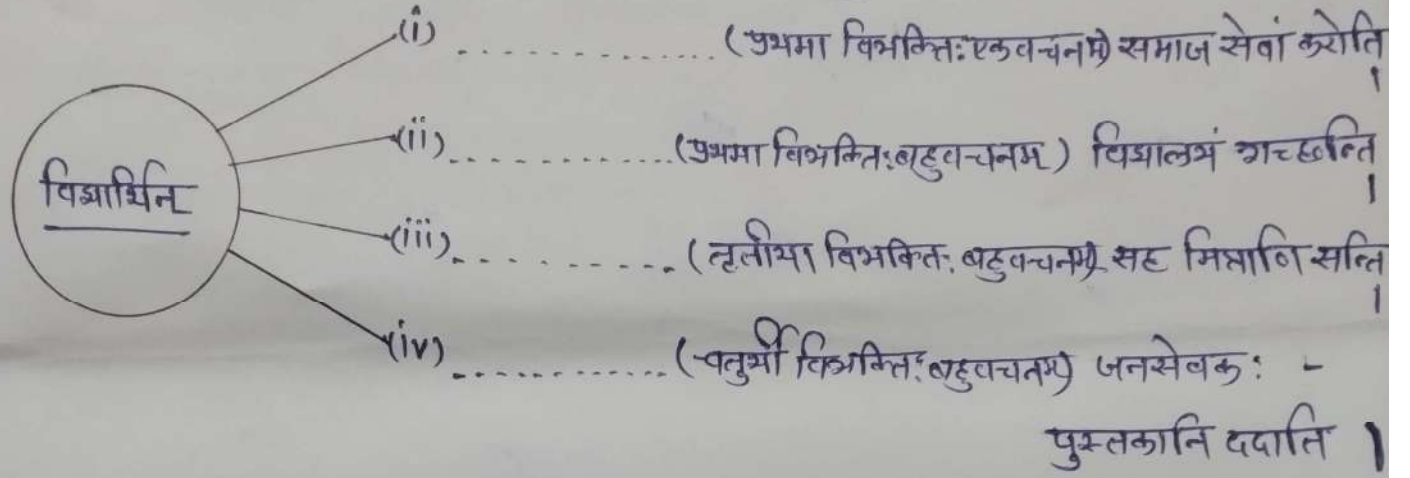 (i) ............. (प्रथमा विभक्ति: एकवचनम्) समाज सेवां करोति ।
(ii) ............. (प्रथमा विभक्ति: बहुवचनम्) विद्यालयं गच्छन्ति ।
विद्यार्थिन्
(iii) ............. (तृतीया विभक्ति: बहुवचनम्) सह मित्राणि सन्ति ।
(iv) ............. (चतुर्थी विभक्ति: बहुवचनम्) जनसेवक: -
पुस्तकानि ददाति ।